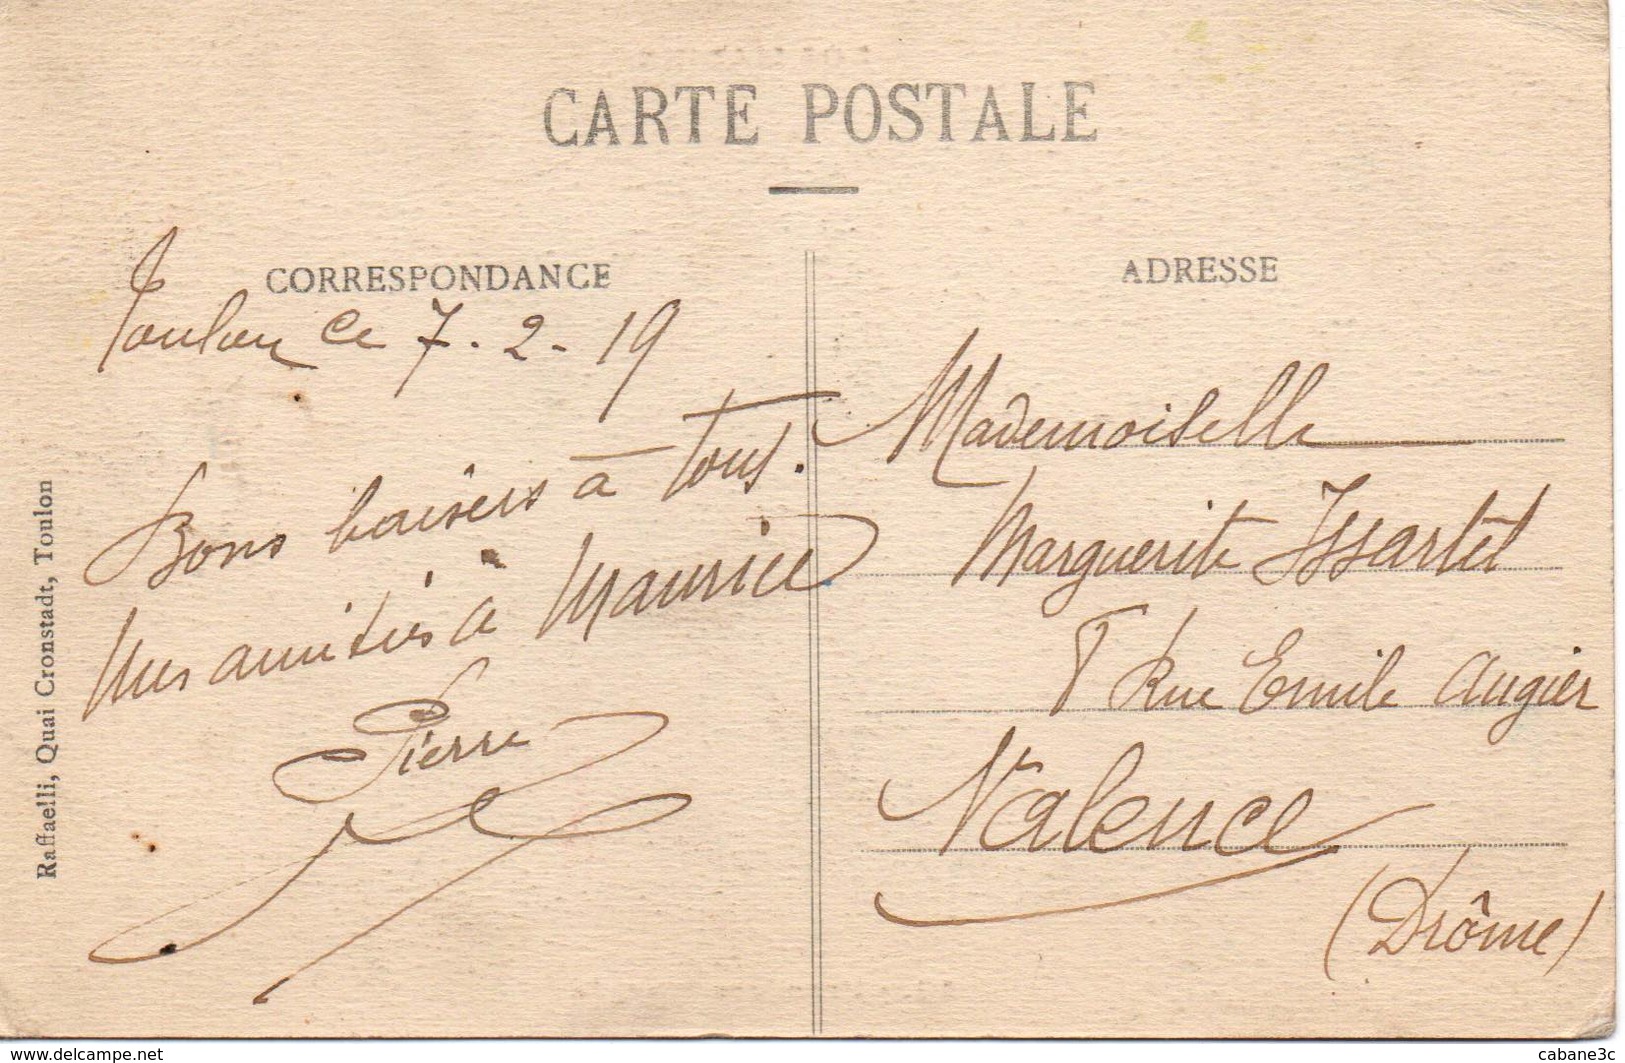 CARTE POSTALE
CORRESPONDANCE
Toulon ce 7-2-19
Bons baisers à tous.
Mes amitiés à Maurice
Pierre
Raffaelli, Quai Cronstadt, Toulon
ADRESSE
Mademoiselle
Marguerite Issartel
Rue Emile Augier
Valence
(Drôme)
www.delcampe.net
cabane3c